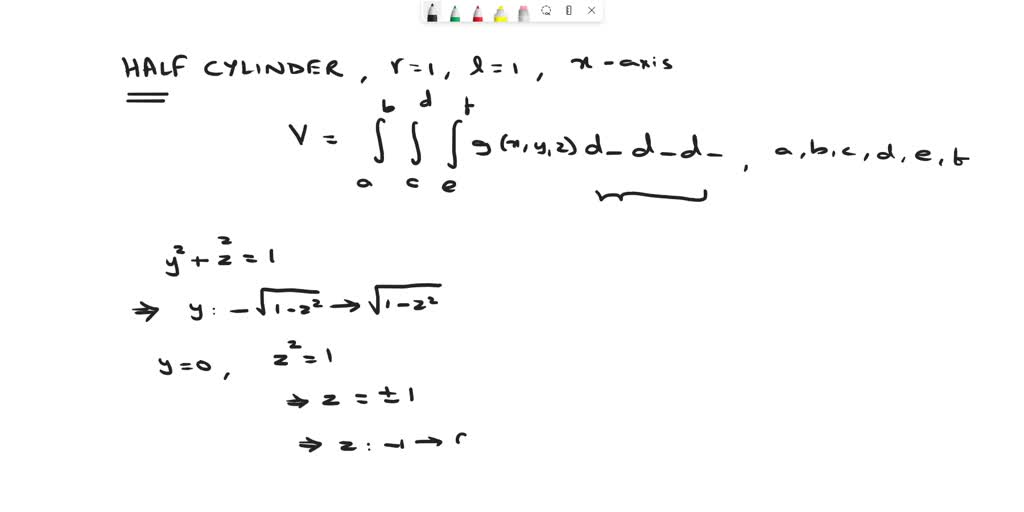 HALF CYLINDER, r=1, l=1, x-axis
V = ∫_a^b ∫_c^d ∫_e^f g(x,y,z) d_ d_ d_, a,b,c,d,e,f
y² + z² = 1
⇒ y: -√(1-z²) → √(1-z²)
y=0, z² = 1
⇒ z = ±1
⇒ z: -1 →